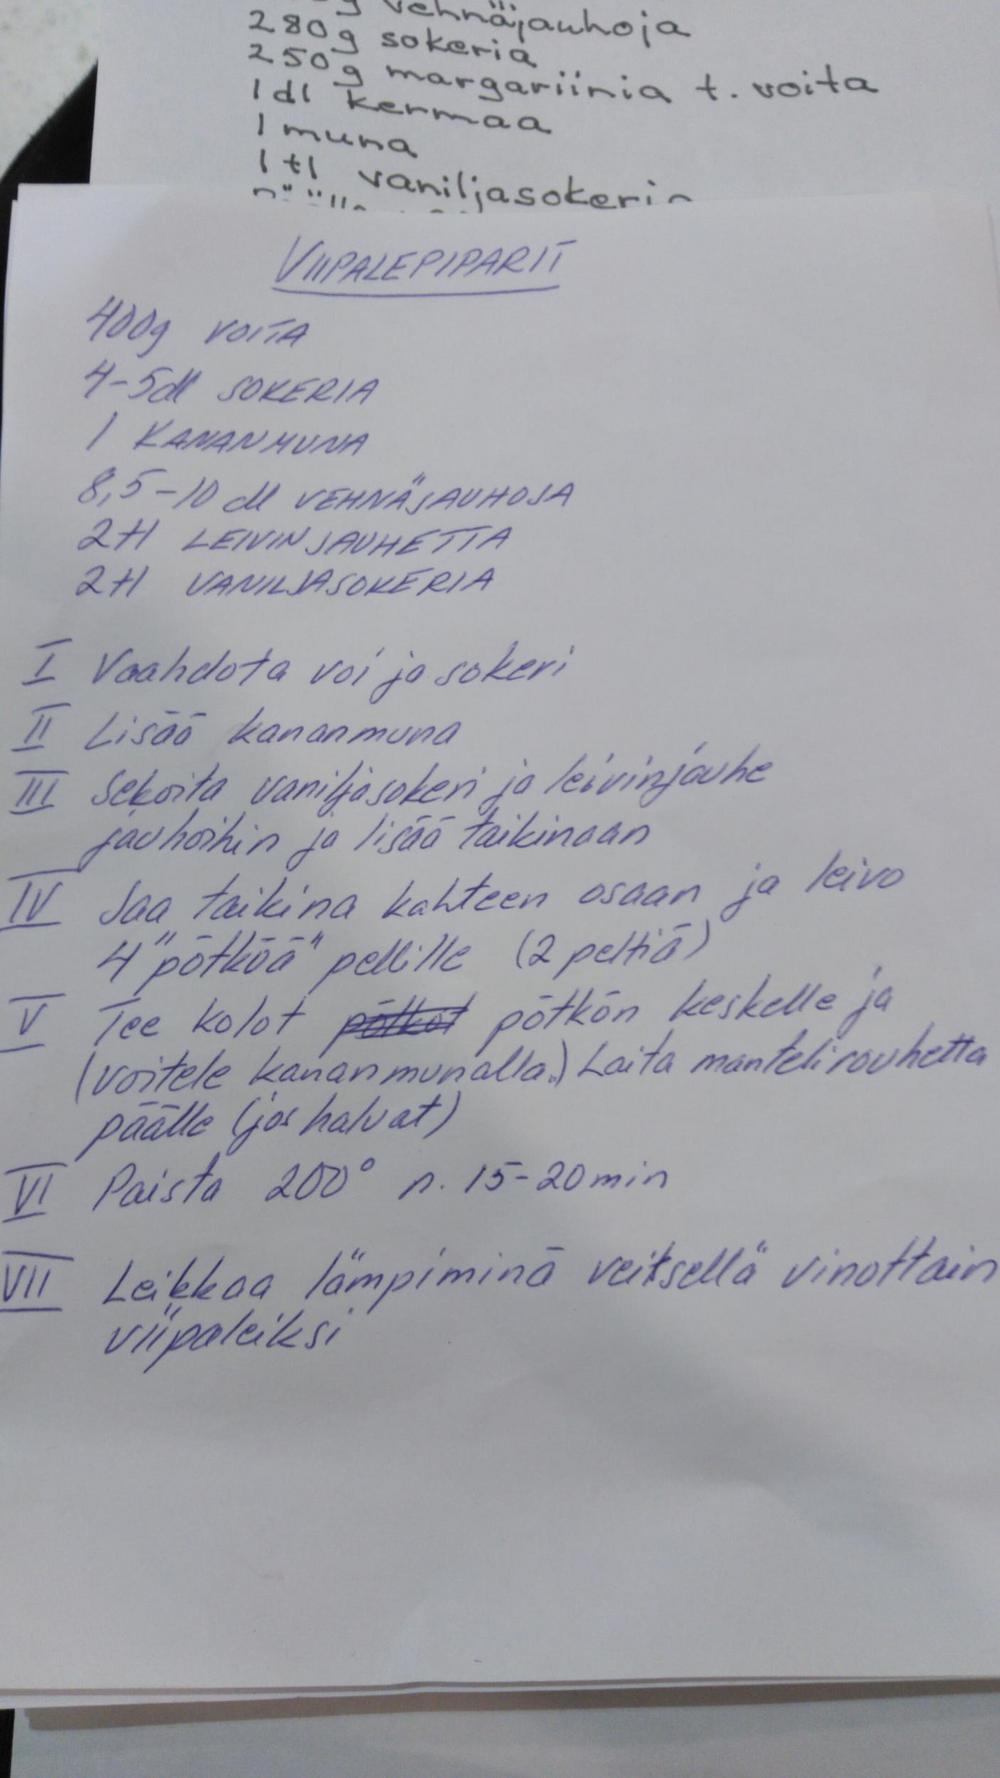 vehnäjauhoja
280g sokeria
250g margariinia t. voita
1 dl kermaa
1 muna
1 tl vaniljasokeria
VIIPALEPIPARIT
400g VOITA
4-5dl SOKERIA
1 KANANMUNA
8,5-10 dl VEHNÄJAUHOJA
2tl LEIVINJAUHETTA
2tl VANILJASOKERIA
I Vaahdota voi ja sokeri
II Lisää kananmuna
III Sekoita vaniljasokeri ja leivinjauhe
jauhoihin ja lisää taikinaan
IV Jaa taikina kahteen osaan ja leivo
4 "pötköä" pellille (2 peltiä)
V Tee kolot pötköt pötkön keskelle ja
(voitele kananmunalla.) Laita mantelirouhetta
päälle (jos haluat)
VI Paista 200° n. 15-20min
VII Leikkaa lämpiminä veitsellä vinottain
viipaleiksi